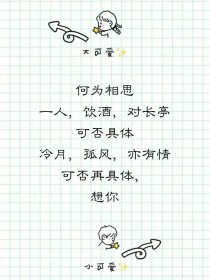 大可爱✨
何为相思
一人，饮酒，对长亭
可否具体
冷月，孤风，亦有情
可否再具体，
想你
小可爱✨